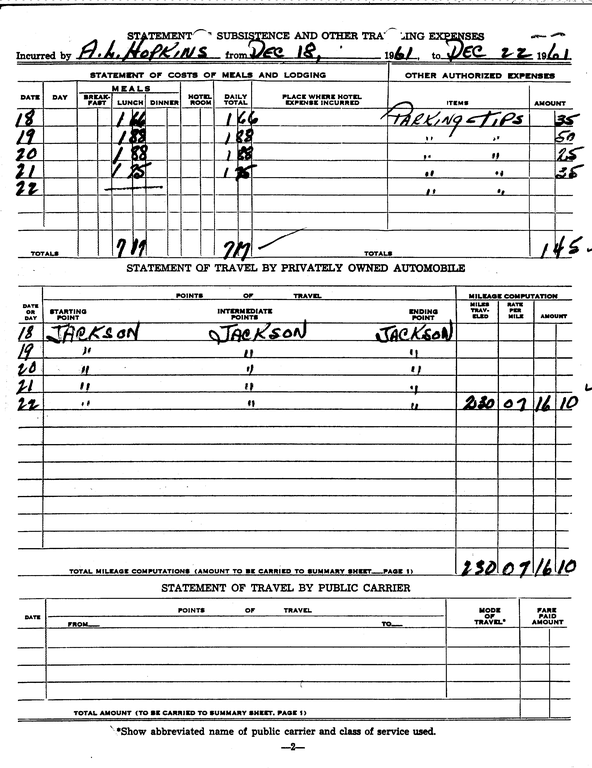 STATEMENT SUBSISTENCE AND OTHER TRA ING EXPENSES
Incurred by A.L. HOPKINS from DEC 18, 1961, to DEC 22 1961
STATEMENT OF COSTS OF MEALS AND LODGING OTHER AUTHORIZED EXPENSES
MEALS
DATE DAY BREAK-FAST LUNCH DINNER HOTEL ROOM DAILY TOTAL PLACE WHERE HOTEL EXPENSE INCURRED ITEMS AMOUNT
18 1 66 1 66 PARKING - TIPS 35
19 1 88 1 88 " " 50
20 1 88 1 88 " " 25
21 1 75 1 75 " " 35
22 " "
TOTALS 7 17 7 17 TOTALS 1 45
STATEMENT OF TRAVEL BY PRIVATELY OWNED AUTOMOBILE
POINTS OF TRAVEL MILEAGE COMPUTATION
DATE OR DAY STARTING POINT INTERMEDIATE POINTS ENDING POINT MILES TRAV-ELED RATE PER MILE AMOUNT
18 JACKSON JACKSON JACKSON
19 " " "
20 " " "
21 " " "
22 " " " 230 07 16 10
TOTAL MILEAGE COMPUTATIONS (AMOUNT TO BE CARRIED TO SUMMARY SHEET—PAGE 1) 230 07 16 10
STATEMENT OF TRAVEL BY PUBLIC CARRIER
DATE POINTS OF TRAVEL MODE OF TRAVEL* FARE PAID AMOUNT
FROM— TO—
TOTAL AMOUNT (TO BE CARRIED TO SUMMARY SHEET, PAGE 1)
*Show abbreviated name of public carrier and class of service used.
—2—